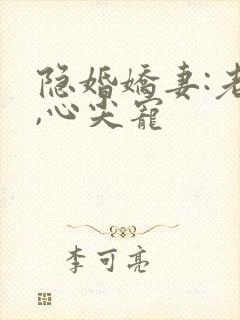 隐婚娇妻:老
,心尖宠
李可亮